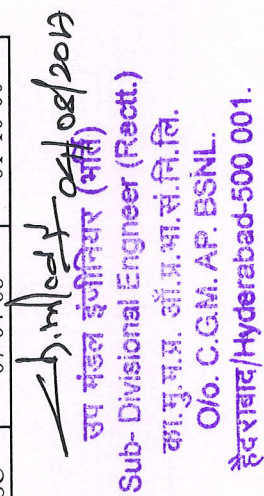 उप मंडल इंजीनियर (भर्ती)
Sub- Divisional Engneer (Rectt.)
का.मु.म.प्र. आं.प्र.भा.सं.नि.लि.
O/o. C.G.M. AP. BSNL.
हैदराबाद/Hyderabad-500 001.